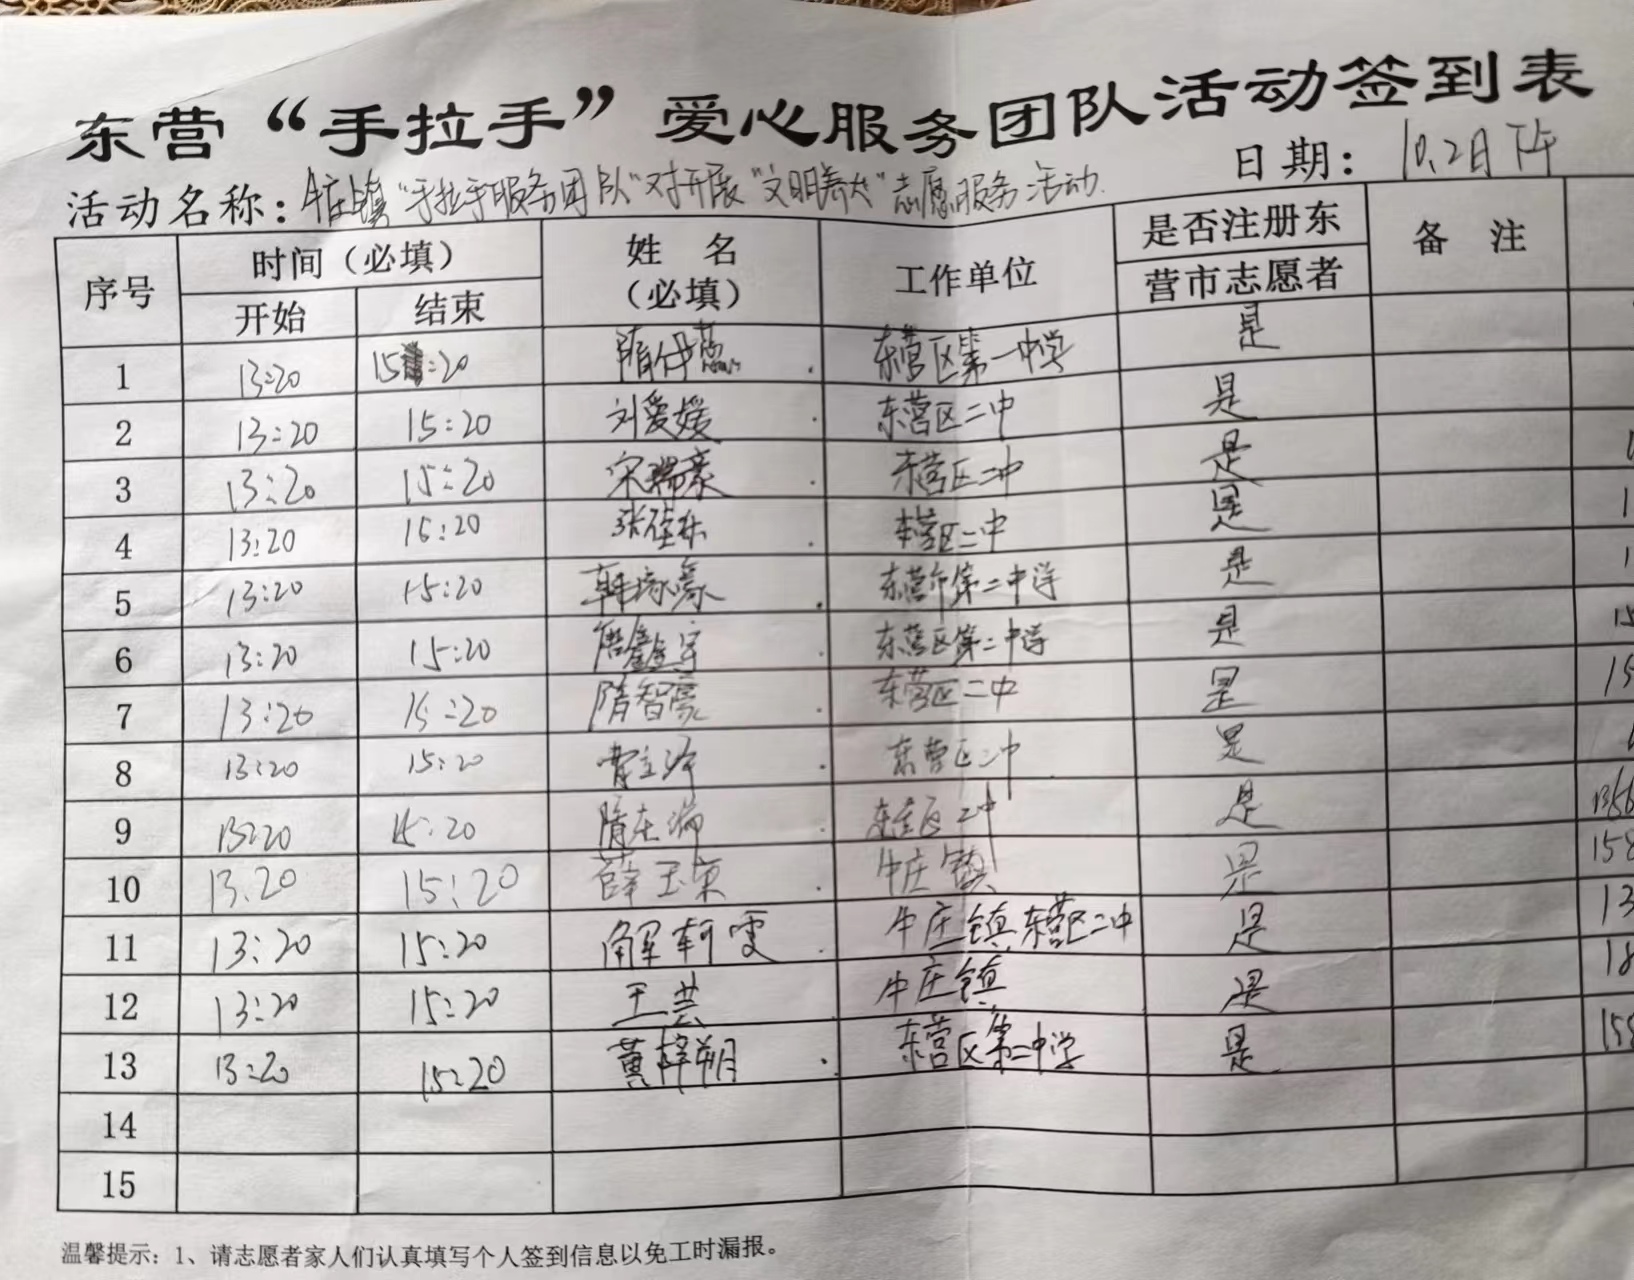 东营“手拉手”爱心服务团队活动签到表
日期：10.2日下午
活动名称：牛庄镇“手拉手服务团队”对开展“文明养犬”志愿服务活动.
序号 时间（必填） 姓 名（必填） 工作单位 是否注册东营市志愿者 备 注
开始 结束
1 13:20 15:20 隋 东营区第一中学 是
2 13:20 15:20 刘爱媛 东营区二中 是
3 13:20 15:20 宋瑞豪 东营区二中 是
4 13:20 15:20 张 东营区二中 是
5 13:20 15:20 韩 豪 东营市第二中学 是
6 13:20 15:20 鑫宇 东营区第二中学 是
7 13:20 15:20 隋智豪 东营区二中 是
8 13:20 15:20 东营区二中 是
9 13:20 15:20 隋 瑞 东营区二中 是
10 13.20 15:20 薛玉 牛庄镇 是
11 13:20 15:20 解轲雯 牛庄镇东营区二中 是
12 13:20 15:20 王芸 牛庄镇 是
13 13:20 15:20 黄梓朔 东营区第二中学 是
14
15
温馨提示：1、请志愿者家人们认真填写个人签到信息以免工时漏报。